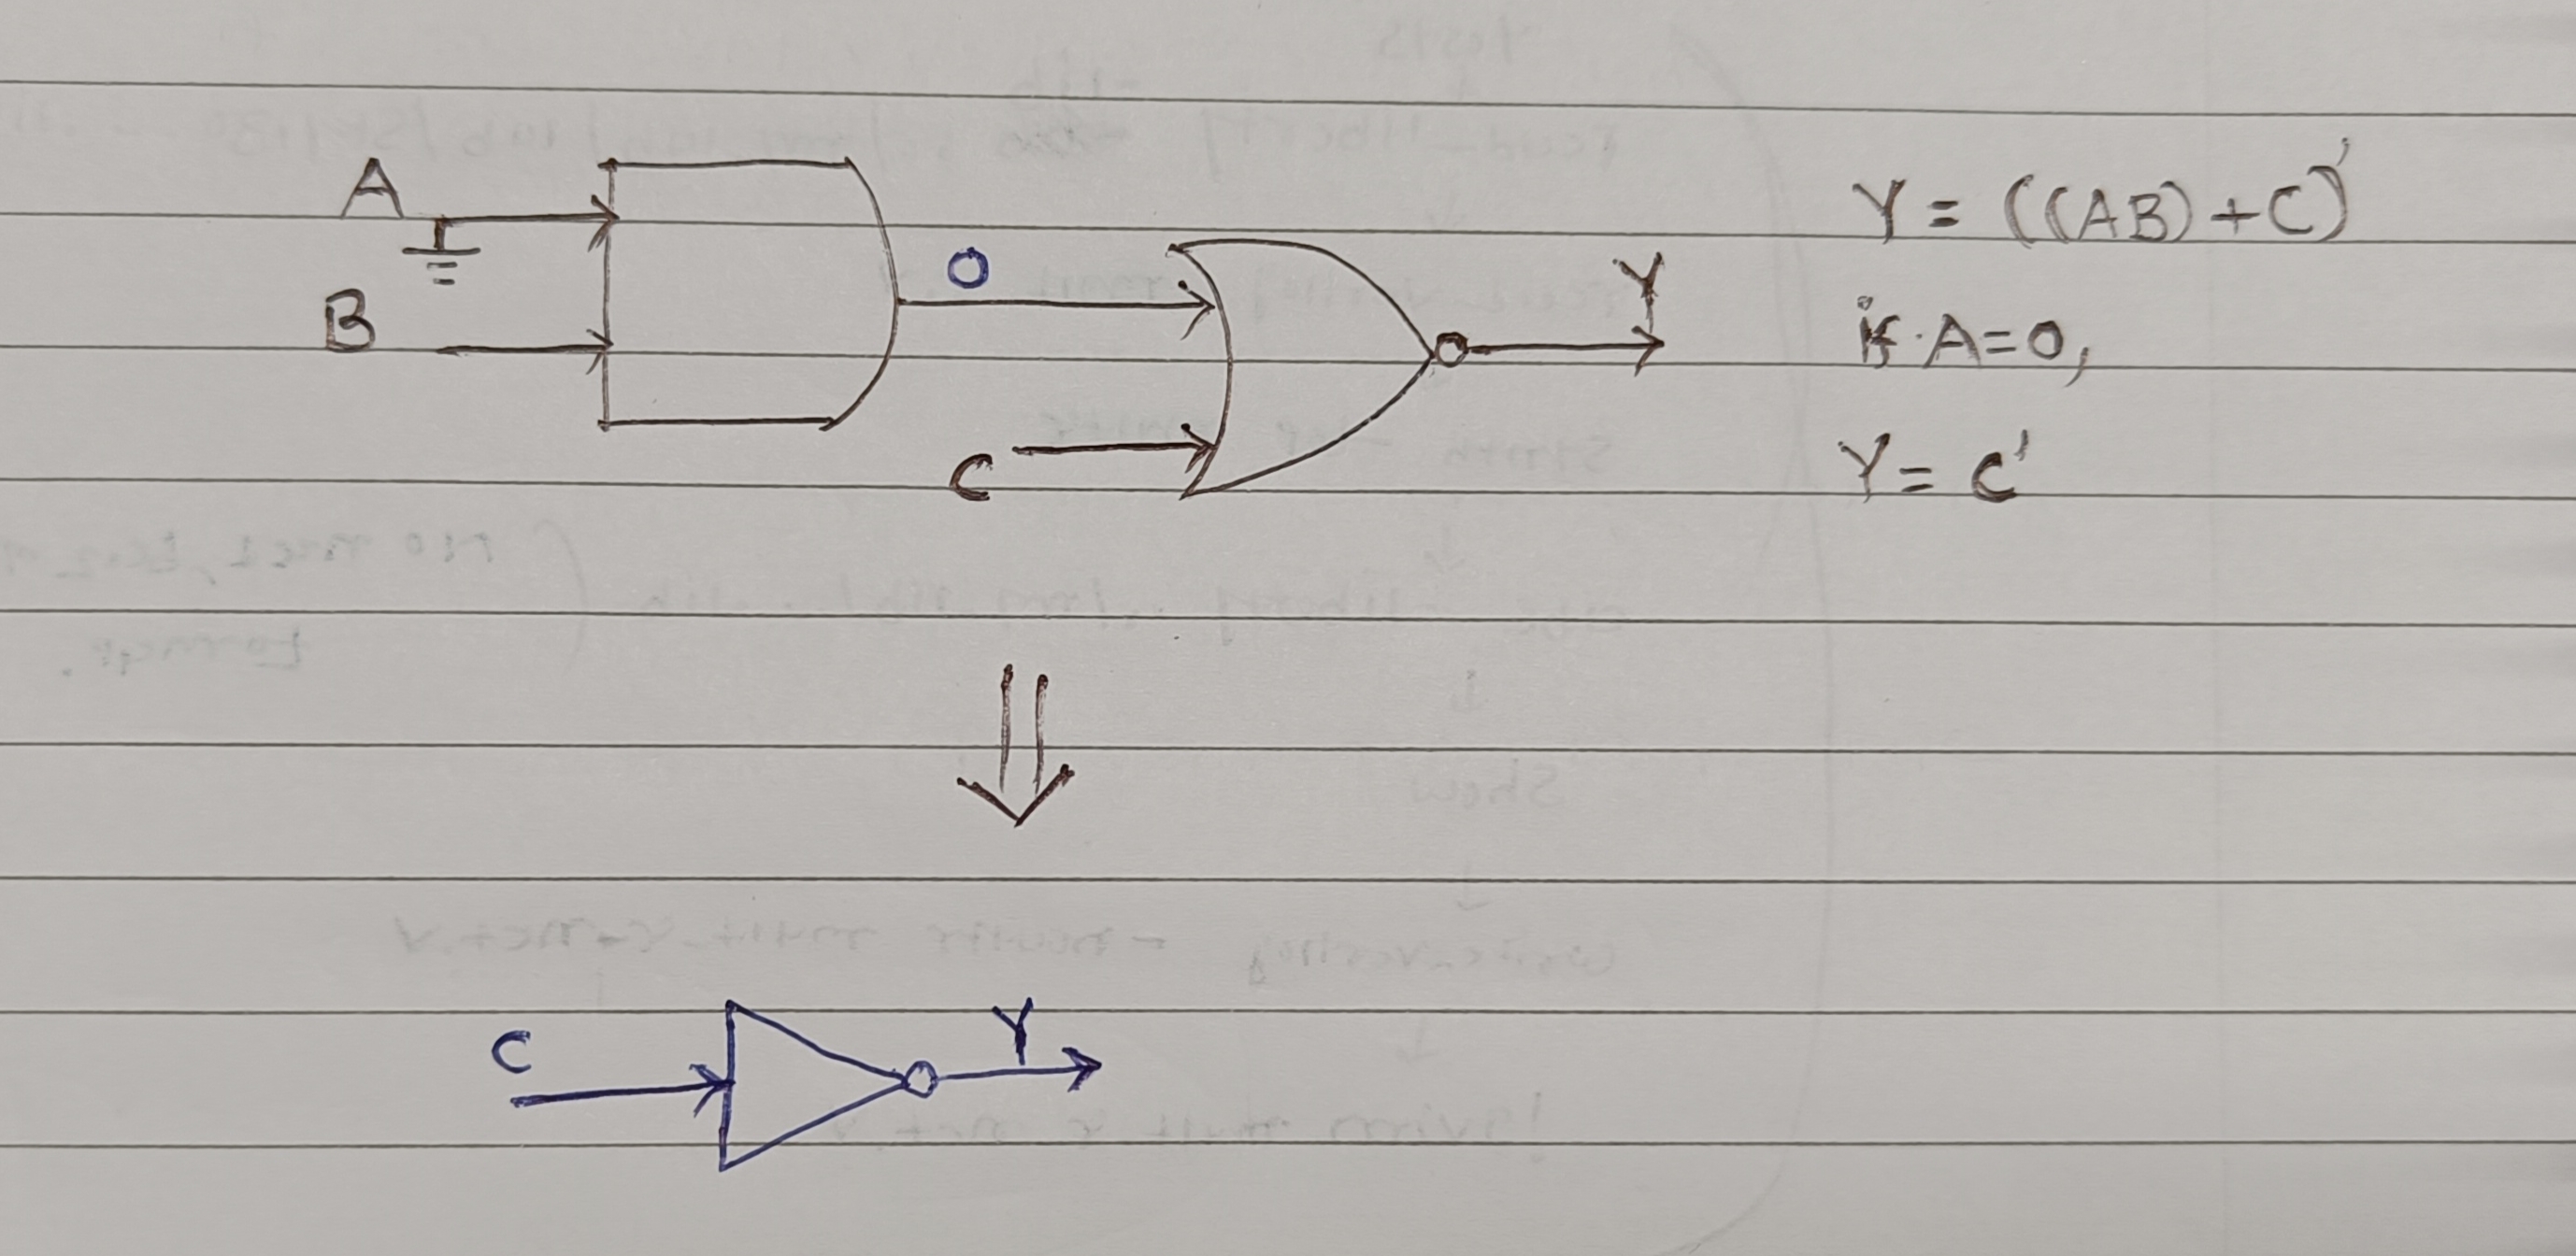 A
B
0
C
Y
Y = ((AB) + C)'
if A=0,
Y = C'
C
Y